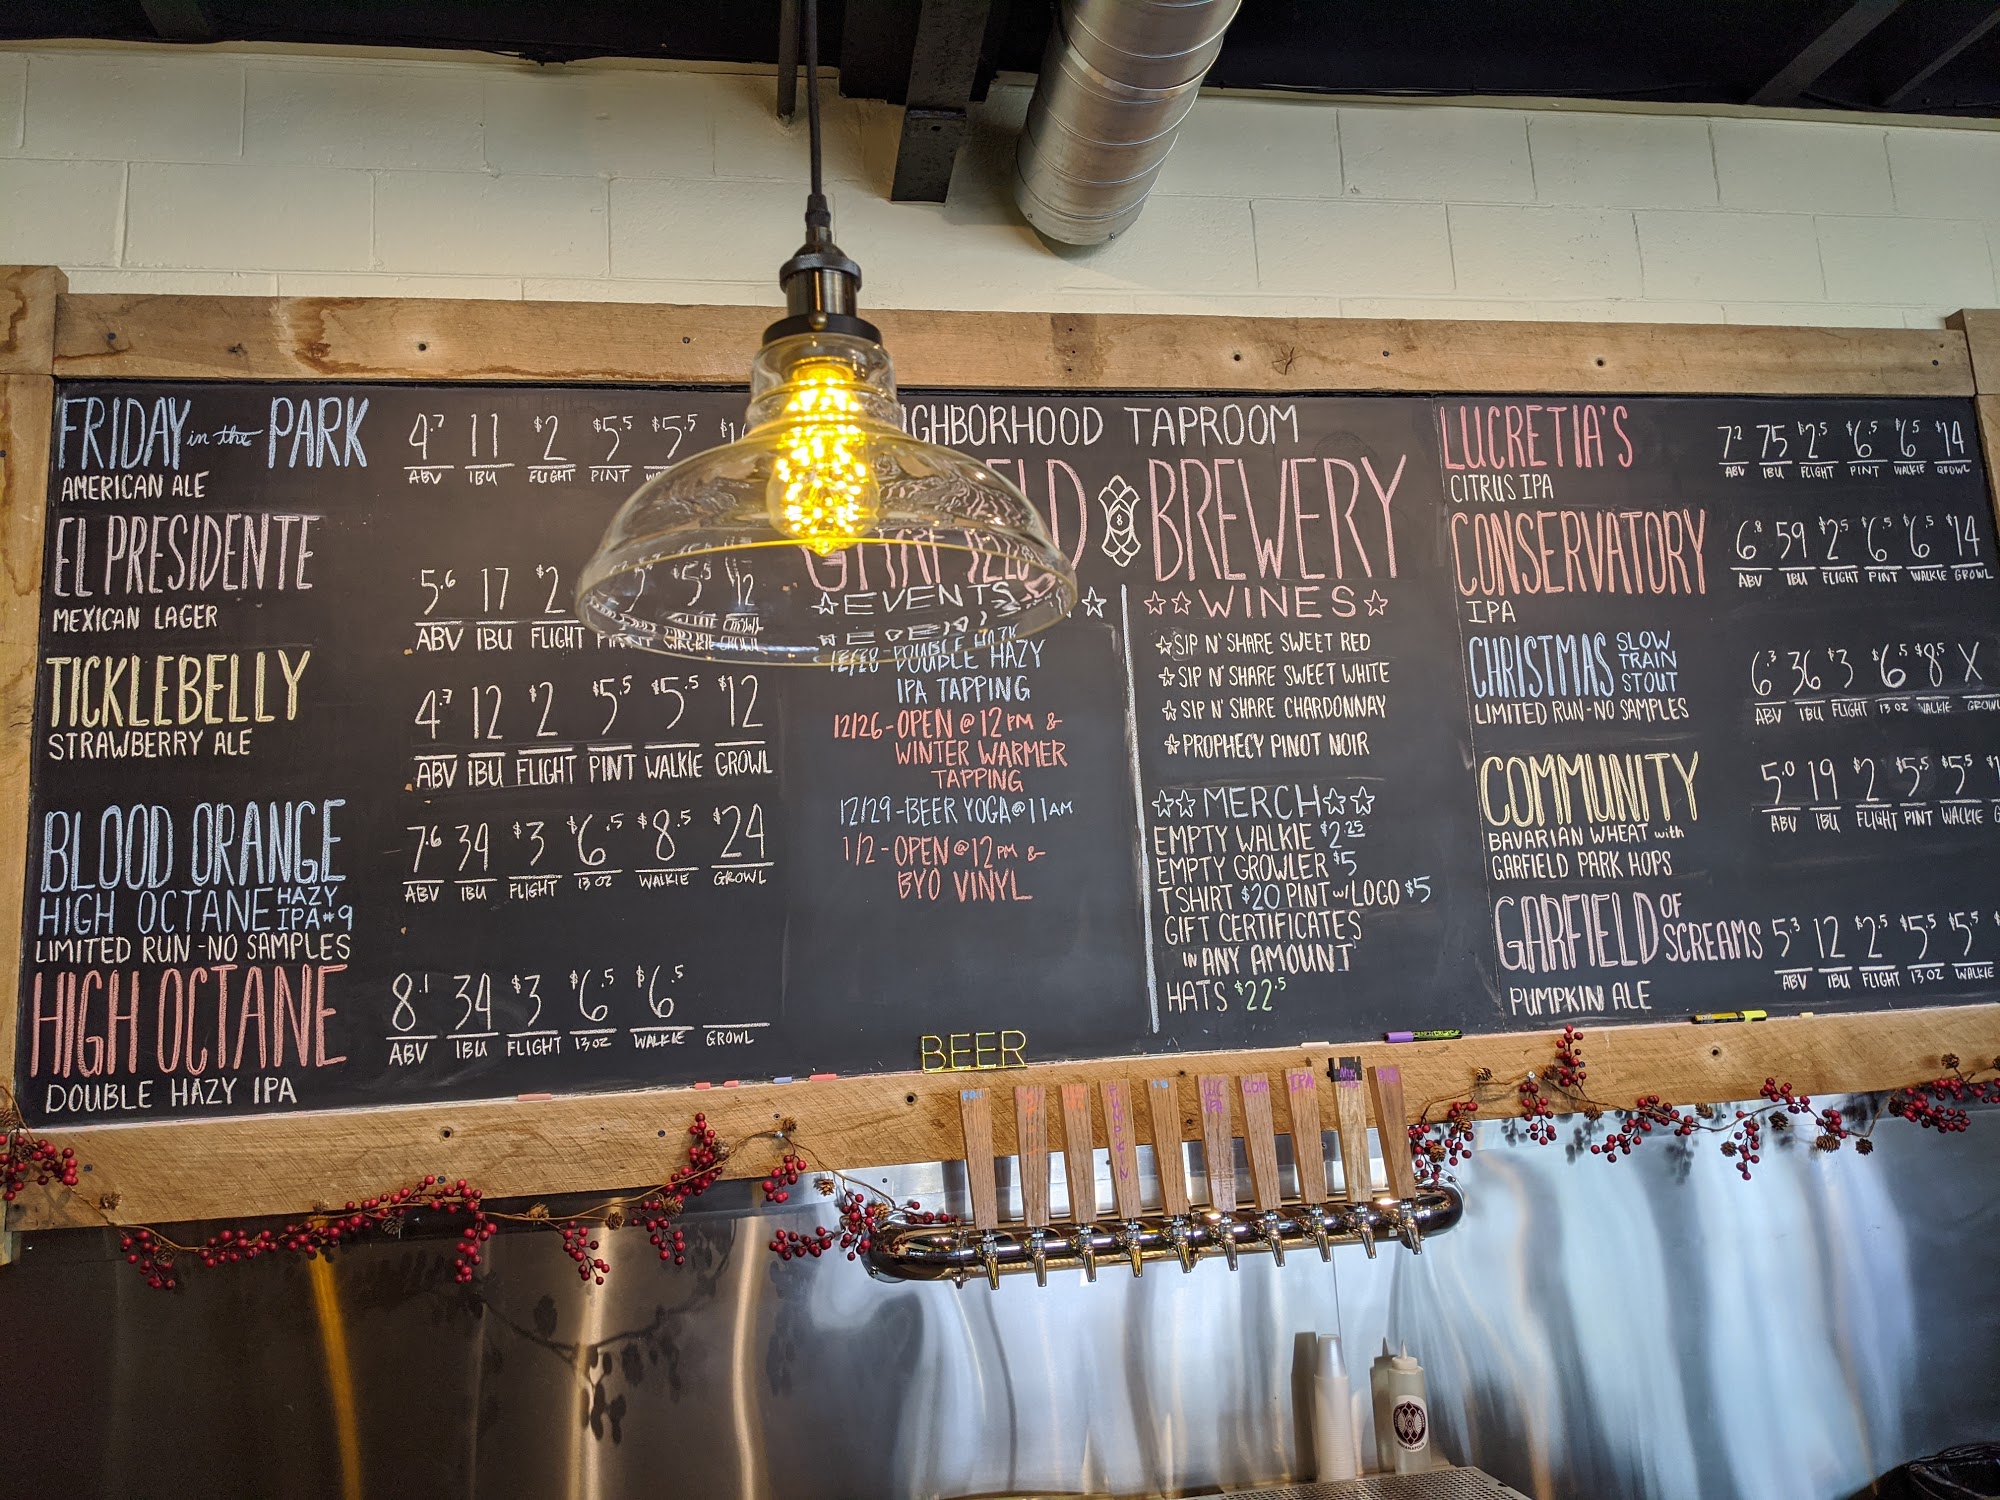 FRIDAY in the PARK
AMERICAN ALE
4.7 11 $2 $5.5 $5.5
ABV IBU FLIGHT PINT
EL PRESIDENTE
MEXICAN LAGER
5.6 17 $2 $5.5 12
ABV IBU FLIGHT WALKIE GROWL
TICKLEBELLY
STRAWBERRY ALE
4.7 12 $2 $5.5 $5.5 $12
ABV IBU FLIGHT PINT WALKIE GROWL
BLOOD ORANGE
HIGH OCTANE HAZY IPA #9
LIMITED RUN - NO SAMPLES
7.6 34 $3 $6.5 $8.5 $24
ABV IBU FLIGHT 13 OZ WALKIE GROWL
HIGH OCTANE
DOUBLE HAZY IPA
8.1 34 $3 $6.5 $6.5
ABV IBU FLIGHT 13 OZ WALKIE GROWL
GHBORHOOD TAPROOM
GARFIELD BREWERY
EVENTS
12/20 - DOUBLE HAZY
IPA TAPPING
12/26 - OPEN @ 12 PM &
WINTER WARMER
TAPPING
12/29 - BEER YOGA @ 11 AM
1/2 - OPEN @ 12 PM &
BYO VINYL
WINES
SIP N' SHARE SWEET RED
SIP N' SHARE SWEET WHITE
SIP N' SHARE CHARDONNAY
PROPHECY PINOT NOIR
MERCH
EMPTY WALKIE $2.25
EMPTY GROWLER $5
T SHIRT $20 PINT w/ LOGO $5
GIFT CERTIFICATES
IN ANY AMOUNT
HATS $22.5
LUCRETIA'S
CITRUS IPA
7.2 75 $2.5 $6.5 $6.5 $14
ABV IBU FLIGHT PINT WALKIE GROWL
CONSERVATORY
IPA
6.8 59 $2.5 $6.5 $6.5 $14
ABV IBU FLIGHT PINT WALKIE GROWL
CHRISTMAS SLOW TRAIN STOUT
LIMITED RUN - NO SAMPLES
6.3 36 $3 $6.5 $8.5 X
ABV IBU FLIGHT 13 OZ WALKIE GROWL
COMMUNITY
BAVARIAN WHEAT with
GARFIELD PARK HOPS
5.0 19 $2 $5.5 $5.5
ABV IBU FLIGHT PINT WALKIE
GARFIELD OF SCREAMS
PUMPKIN ALE
5.3 12 $2.5 $5.5 $5.5
ABV IBU FLIGHT 13 OZ WALKIE
BEER
PUMPKIN
LUC IPA
COM
IPA